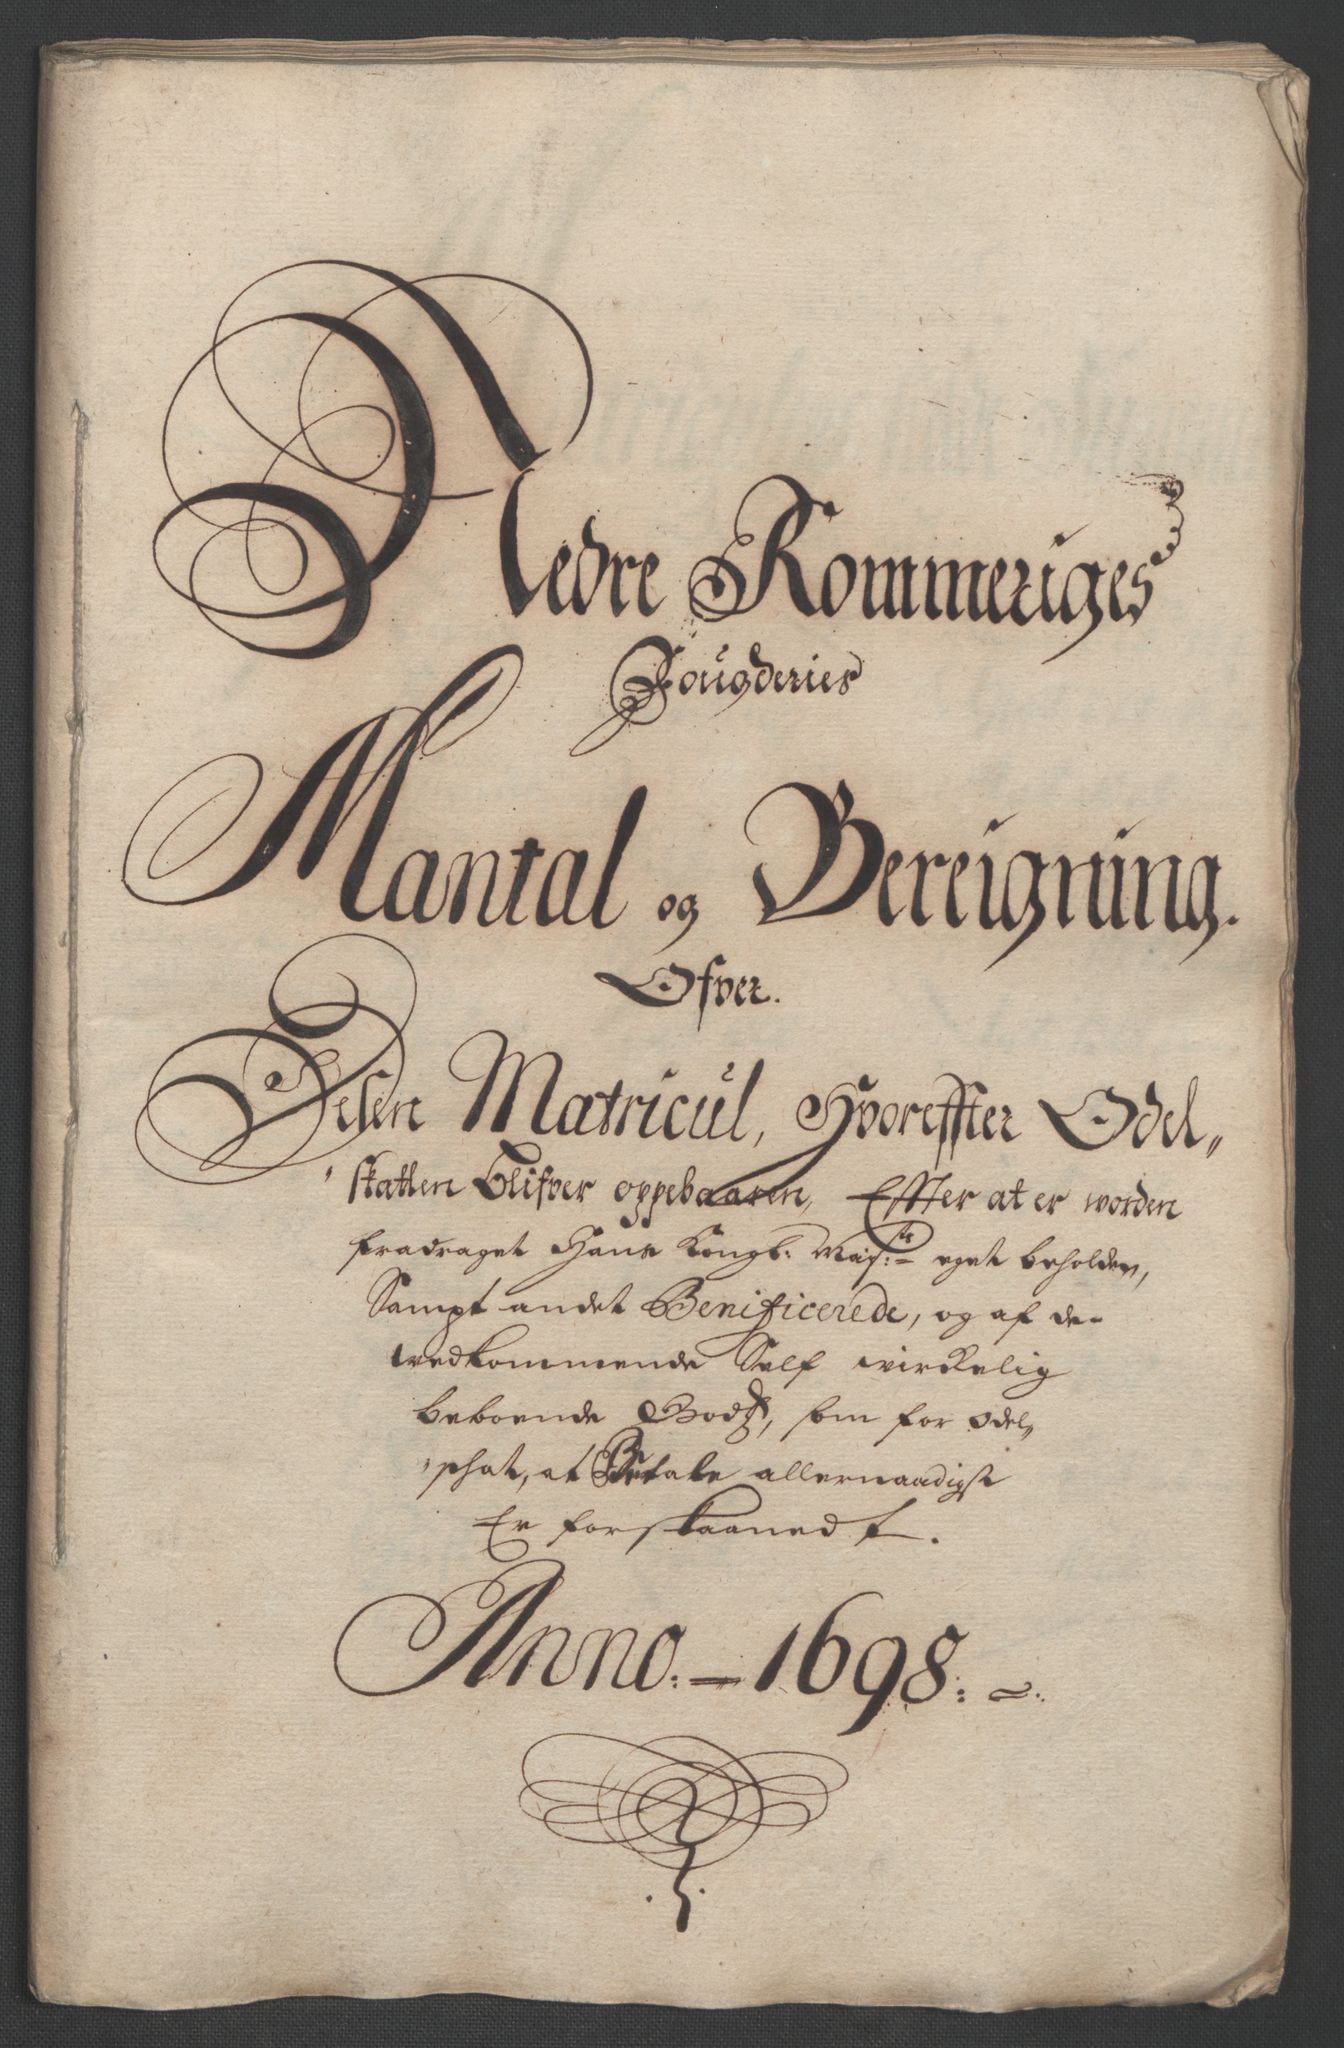 Nedre Rommeriges
Fougderies
Mantal og Bereigning.
Ofver.
Delen Matricul, Hvoreffter Odel„
„skatten blifver oppebaaren, Effter at er worden
fradraget Hans Kongl: Maj:ts eget beholden,
Sampt andet Benificerede, og af de„
wedkommende Self wirkelig
beboende Godz, som for odel„
„schat, at Betale allernaadigst
Er forskaanedt.
Anno. — 1698: